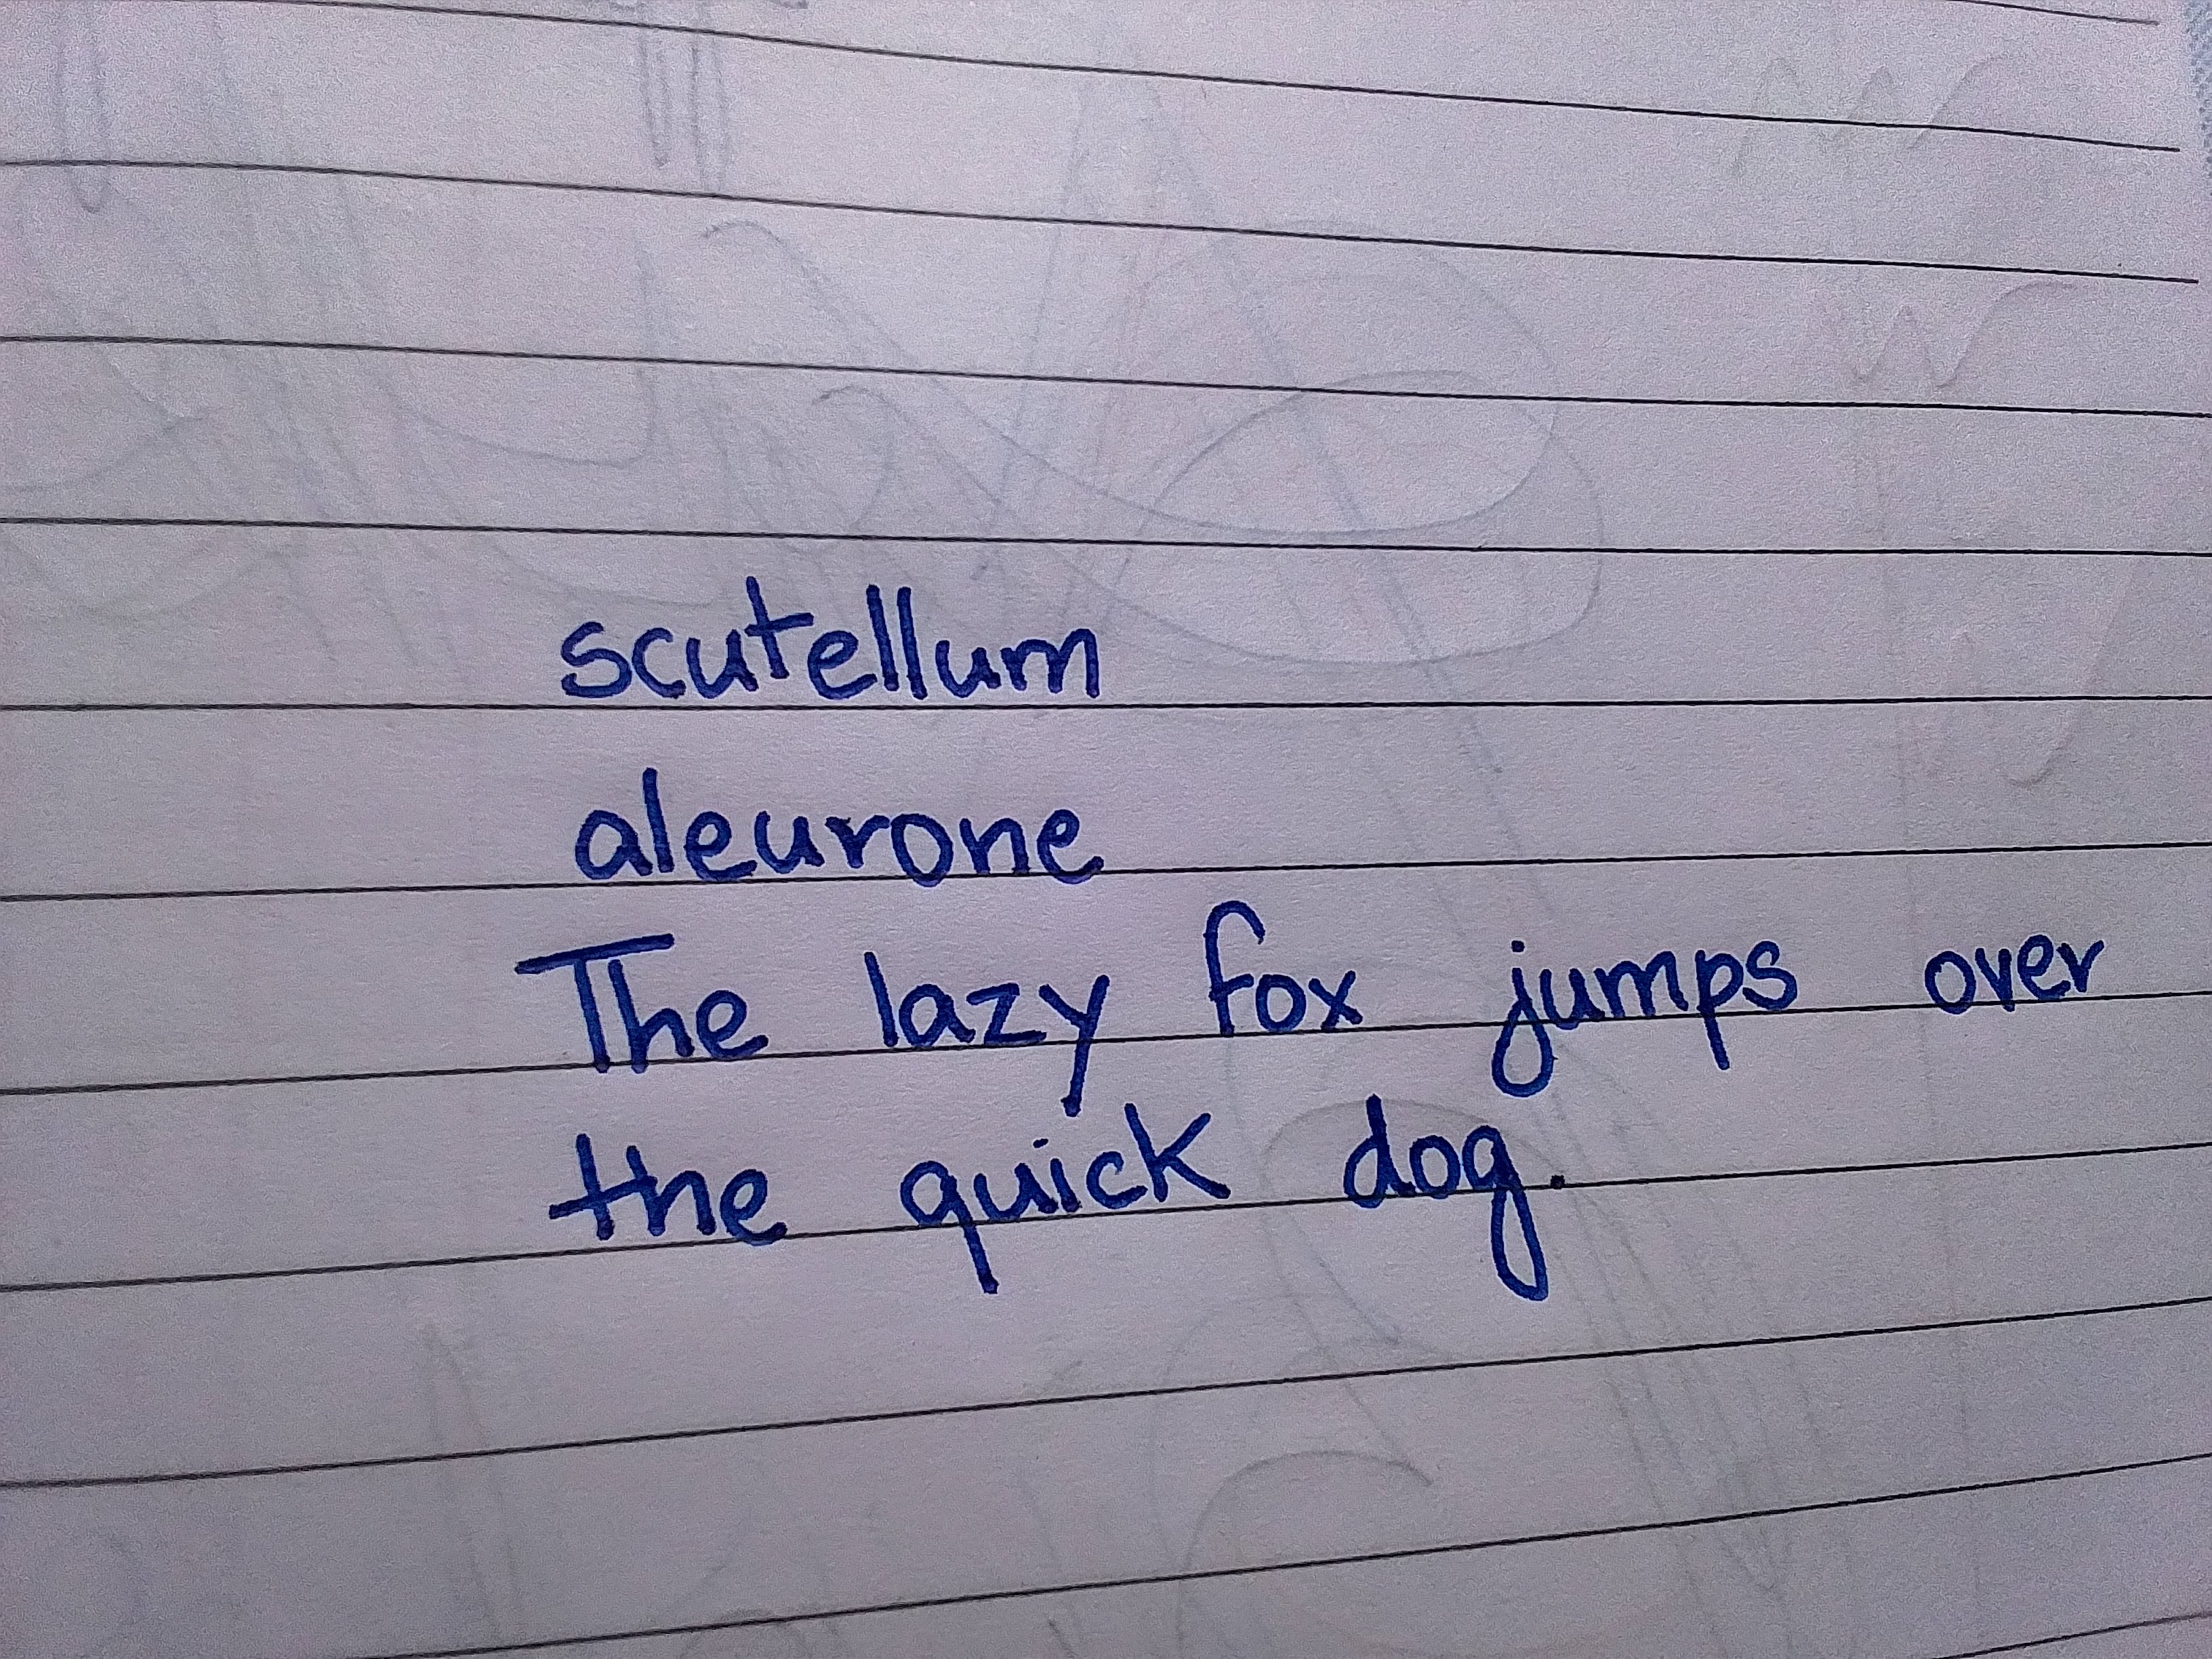 scutellum
aleurone
The lazy fox jumps over
the quick dog.